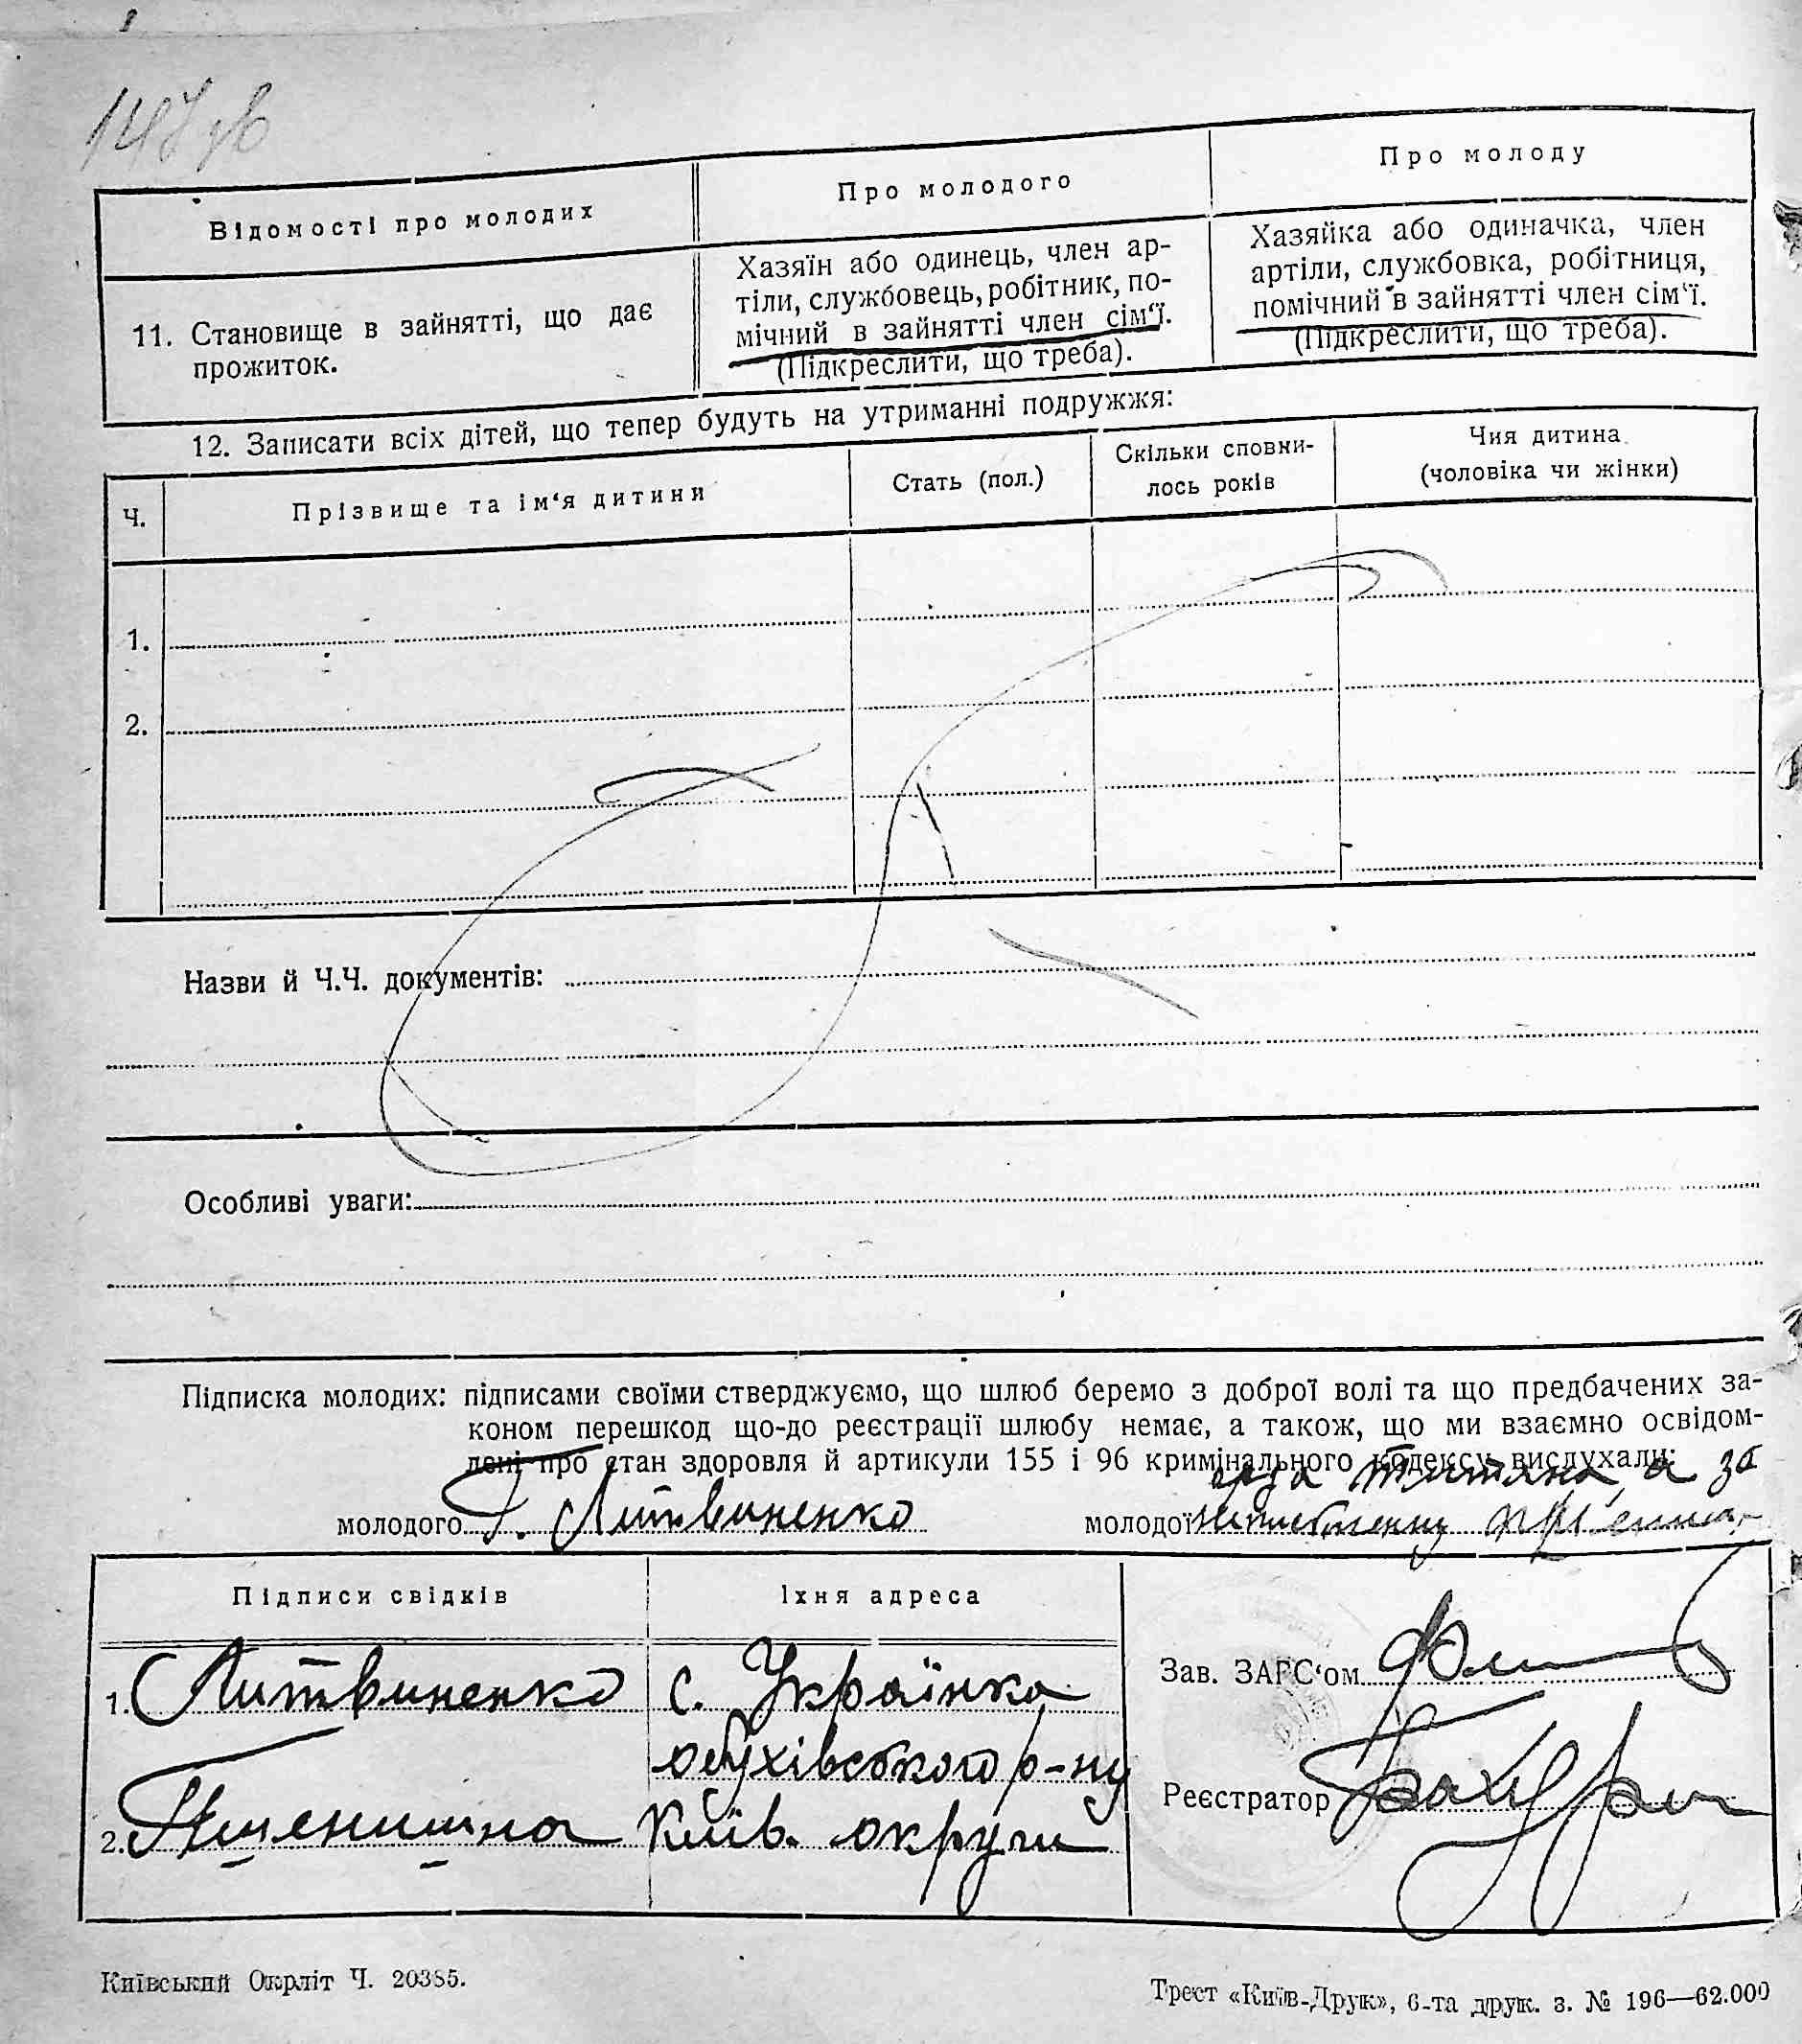 147 зв
Відомості про молодих
Про молодого
Про молоду
11. Становище в зайнятті, що дає
прожиток.
Хазяїн або одинець, член ар-
тіли, службовець, робітник, по-
мічний в зайнятті член сім‘ї.
(Підкреслити, що треба).
Хазяйка або одиначка, член
артіли, службовка, робітниця,
помічний в зайнятті член сім‘ї.
(Підкреслити, що треба).
12. Записати всіх дітей, що тепер будуть на утриманні подружжя:
Ч.
Прізвище та ім‘я дитини
Стать (пол.)
Скільки сповни-
лось років
Чия дитина
(чоловіка чи жінки)
1.
2.
Назви й Ч.Ч. документів:
Особливі уваги:
Підписка молодих: підписами своїми стверджуємо, що шлюб беремо з доброї волі та що предбачених за-
коном перешкод що-до реєстрації шлюбу немає, а також, що ми взаємно освідом-
лені про стан здоровля й артикули 155 і 96 кримінального кодексу вислухали:
а за
молодого Г. Литвиненко
молодої неписьменну
Підписи свідків
Їхня адреса
1. Литвиненко
с. Українка
обухівського р-ну
2. Пшенишна
Київ. округи
Зав. ЗАГС‘ом
Реєстратор
Київський Окрліт Ч. 20385.
Трест «Київ-Друк», 6-та друк. з. № 196—62.000